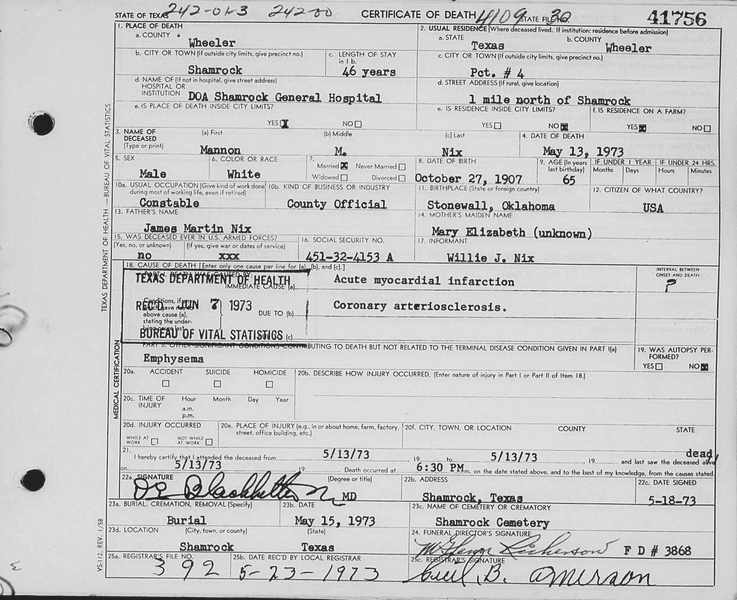 242-01-3 242-00 4109 30
STATE OF TEXAS CERTIFICATE OF DEATH STATE FILE 41756
1. PLACE OF DEATH 2. USUAL RESIDENCE (Where deceased lived. If institution: residence before admission)
a. COUNTY a. STATE b. COUNTY
Wheeler Texas Wheeler
b. CITY OR TOWN (If outside city limits, give precinct no.) c. LENGTH OF STAY in 1 b. c. CITY OR TOWN (If outside city limits, give precinct no.)
Shamrock 46 years Pct. # 4
d. NAME OF (If not in hospital, give street address) HOSPITAL OR INSTITUTION d. STREET ADDRESS (If rural, give location)
DOA Shamrock General Hospital 1 mile north of Shamrock
e. IS PLACE OF DEATH INSIDE CITY LIMITS? e. IS RESIDENCE INSIDE CITY LIMITS? f. IS RESIDENCE ON A FARM?
YES X NO YES NO X YES X NO
3. NAME OF DECEASED (Type or print) (a) First (b) Middle (c) Last 4. DATE OF DEATH
Mannon M. Nix May 13, 1973
5. SEX 6. COLOR OR RACE 7. Married X Never Married Widowed Divorced 8. DATE OF BIRTH 9. AGE (In years last birthday) IF UNDER 1 YEAR IF UNDER 24 HRS.
Months Days Hours Minutes
Male White October 27, 1907 65
10a. USUAL OCCUPATION (Give kind of work done during most of working life, even if retired) 10b. KIND OF BUSINESS OR INDUSTRY 11. BIRTHPLACE (State or foreign country) 12. CITIZEN OF WHAT COUNTRY?
Constable County Official Stonewall, Oklahoma USA
13. FATHER'S NAME 14. MOTHER'S MAIDEN NAME
James Martin Nix Mary Elizabeth (unknown)
15. WAS DECEASED EVER IN U.S. ARMED FORCES? 16. SOCIAL SECURITY NO. 17. INFORMANT
(Yes, no, or unknown) (If yes, give war or dates of service)
no xxx 451-32-4153 A Willie J. Nix
18. CAUSE OF DEATH [Enter only one cause per line for (a), (b), and (c).] INTERVAL BETWEEN ONSET AND DEATH
TEXAS DEPARTMENT OF HEALTH
IMMEDIATE CAUSE (a) Acute myocardial infarction ?
REC'D JUN 7 1973 DUE TO (b) Coronary arteriosclerosis.
BUREAU OF VITAL STATISTICS (c)
CONTRIBUTING TO DEATH BUT NOT RELATED TO THE TERMINAL DISEASE CONDITION GIVEN IN PART I(a) 19. WAS AUTOPSY PERFORMED?
Emphysema YES NO X
20a. ACCIDENT SUICIDE HOMICIDE 20b. DESCRIBE HOW INJURY OCCURRED. (Enter nature of injury in Part I or Part II of Item 18.)
20c. TIME OF INJURY Hour Month Day Year
a.m.
p.m.
20d. INJURY OCCURRED 20e. PLACE OF INJURY (e.g., in or about home, farm, factory, street, office building, etc.) 20f. CITY, TOWN, OR LOCATION COUNTY STATE
WHILE AT WORK NOT WHILE AT WORK
21. I hereby certify that I attended the deceased from 5/13/73 19 to 5/13/73 19 and last saw the deceased alive dead
on 5/13/73 19 Death occurred at 6:30 PM m. on the date stated above, and to the best of my knowledge, from the causes stated.
22a. SIGNATURE (Degree or title) 22b. ADDRESS 22c. DATE SIGNED
MD Shamrock, Texas 5-18-73
23a. BURIAL, CREMATION, REMOVAL (Specify) 23b. DATE 23c. NAME OF CEMETERY OR CREMATORY
Burial May 15, 1973 Shamrock Cemetery
23d. LOCATION (City, town, or county) (State) 24. FUNERAL DIRECTOR'S SIGNATURE
Shamrock Texas Richerson F D # 3868
25a. REGISTRAR'S FILE NO. 25b. DATE REC'D BY LOCAL REGISTRAR 25c. REGISTRAR'S SIGNATURE
392 5-23-1973 B.
TEXAS DEPARTMENT OF HEALTH — BUREAU OF VITAL STATISTICS
MEDICAL CERTIFICATION
VS-112 REV. 1/58